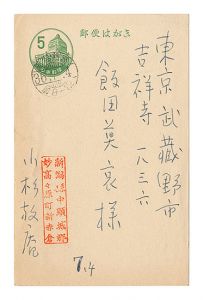 郵便はがき
5
東京 武蔵野市
吉祥寺 一八三六
飯田莫哀様
新潟県中頸城郡
妙高々原町新赤倉
小杉放庵
7.4